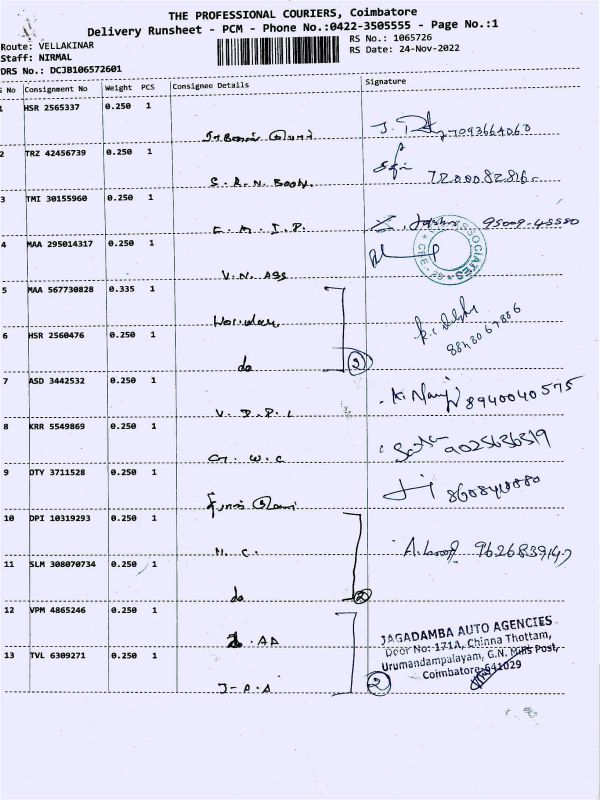 THE PROFESSIONAL COURIERS, Coimbatore
Delivery Runsheet - PCM - Phone No.:0422-3505555 - Page No.:1
Route: VELLAKINAR
RS No.: 1065726
Staff: NIRMAL
RS Date: 24-Nov-2022
DRS No.: DCJB106572601
S No Consignment No Weight PCS Consignee Details Signature
1 HSR 2565337 0.250 1
7093664060
2 TRZ 42456739 0.250 1
S. R. N. Booth.
7200082816
3 TMI 30155960 0.250 1
E. M. I. P.
4 MAA 295014317 0.250 1
V. N. ASS
5 MAA 567730828 0.335 1
6 HSR 2560476 0.250 1
do 2
7 ASD 3442532 0.250 1
V. D. P. L
8940040575
8 KRR 5549869 0.250 1
G. W. C
9025636319
9 DTY 3711528 0.250 1
10 DPI 10319293 0.250 1
N. C.
9626839147
11 SLM 308070734 0.250 1
do 2
12 VPM 4865246 0.250 1
J. AA
13 TVL 6309271 0.250 1
J-A.A
2
JAGADAMBA AUTO AGENCIES
Door No: 171A, Chinna Thottam,
Urumandampalayam, G.N. Mills Post,
Coimbatore-641029